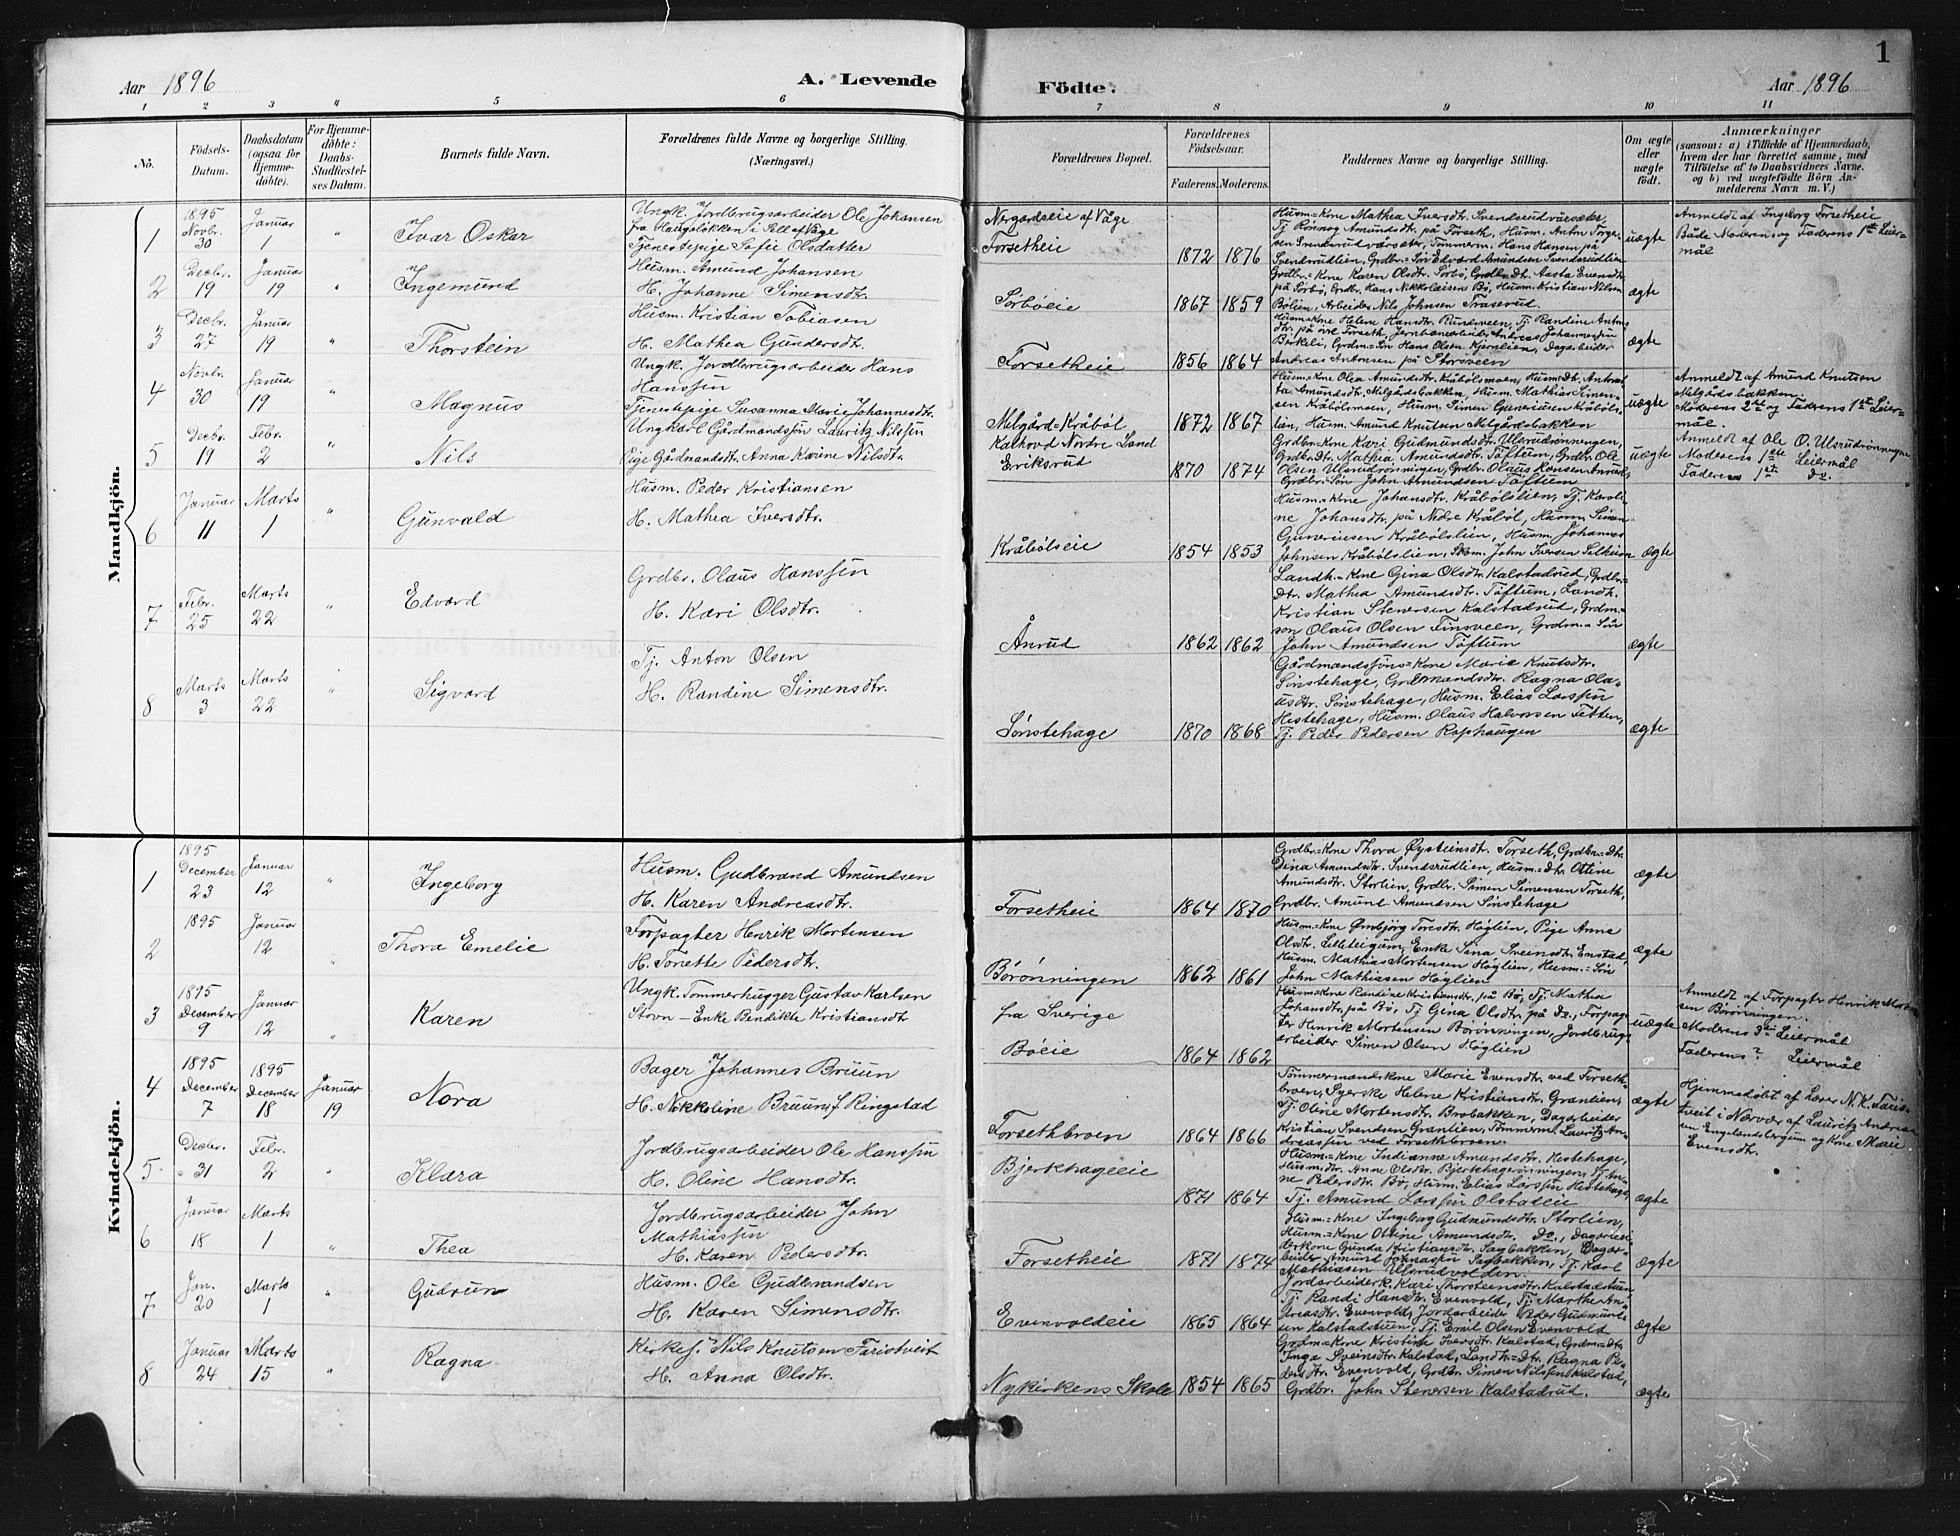 1
Aar 1896
A. Levende
Födte.
Aar 1896
1 2 3 4 5 6 7 8 9 10 11
No.
Födsels-Datum.
Daabsdatum (ogsaa for Hjemmedöbte).
For Hjemmedöbte: Daabs-Stadfæstelses Datum.
Barnets fulde Navn.
Forældrenes fulde Navne og borgerlige Stilling. (Næringsvei.)
Forældrenes Bopæl.
Forældrenes Födselsaar.
Faderens. Moderens.
Faddernes Navne og borgerlige Stilling.
Om ægte eller uægte födt.
Anmærkninger
(saasom: a) i Tilfælde af Hjemmedaab, hvem der har forrettet samme, med Tilföielse af to Daabsvidners Navne. og b) ved uægtefödte Börn Anmelderens Navn m. V.)
Mandkjön.
1
1895 Novbr. 30
Januar 1
"
Ivar Oskar
Ungk. Jordbrugsarbeider Ole Johansen
fra Haugsløkken i Sell af Våge
Tjenestepige Sofie Olsdatter
Nergardseie af Våge
Forsetheie
1872 1876
Husm.=Kone Mathea Iversdtr. Svendsrudværsæter,
Tj. Rønnog Amundsdtr. på Forseth, Husm. Anton Torger-
sen Svendsrudværsæter, Tømmerm. Hans Hansen på
Svendsrudlien, Grdbr.=Søn Edvard Amundsen Svendsrudlien
uægte
Anmeldt af Ingeborg Forsetheie
Både Moderens og Faderens 1ste Leier-
mål
2
Decbr. 19
Januar 19
"
Ingemund
Husm. Amund Johansen
H. Johanne Simensdtr.
Sørbøeie
1867 1859
Grdbr.=Kone Karen Olsdtr. Sørbø, Grdbr.Dtr. Aasta Evensdtr.
på Sørbø, Grdbr. Hans Nikkolaisen Bø, Husm. Kristian Nilsen
Bølien, Arbeider Nils Johnsen Traserud
ægte
3
Decbr. 27
Januar 19
"
Thorstein
Husm. Kristian Tobiasen
H. Mathea Gundersdtr.
Forsetheie
1856 1864
Husm=Kone Helene Hansdtr. Rundsveen, Tj. Randine Antons
dtr. på øvre Forseth, Jernbanearbeider Andreas Johannessen
Birkeli, Grdm.=Søn Hans Olsen Kjernlien, Dagarbeider
Andreas Antonsen på Storsveen
ægte
4
Novbr. 30
Januar 19
"
Magnus
Ungk. Jordbrugsarbeider Hans
Hanssen
Tjenestepige Susanna Marie Johannesdtr.
Melgård=Kråbøl
1872 1867
Husm=Kone Olea Amundsdtr. Kråbølsmoen, Husm.Dtr. Antonet-
ta Amundsdtr. Melgårdsbakken, Husm. Mathias Simen-
sen Kråbølsmoen, Husm. Simen Guneriusen Kråbøls-
lien, Husm. Amund Knutsen Melgårdsbakken
uægte
Anmeldt af Amund Knutsen
Melgårdsbakken
Moderens 2det og Faderens 1ste Leier-
mål.
5
Decbr. 19
Febr. 2
Nils
Ungkarl Gårdmandssøn Lauritz Nilssen
Pige Gårdmandsdtr. Anna Karine Nilsdtr.
Kalhovd Nordre Land
Eriksrud
1870 1874
Grdbr=Kone Kari Gudmundsdtr. Ulsrudrønningen,
Grdbr=Dtr. Mathia Amundsdtr. Tøftum, Grdbr. Ole
Olsen Ulsrudrønningen, Grdbr. Olaus Hansen Ånrud,
Grdbr=Søn John Amundsen Tøftum
uægte
Anmeldt af Ole O. Ulsrudrønningen
Moderens 1ste Leiermål
Faderens 1st do.
6
Januar 11
Marts 1
"
Gunvald
Husm. Peder Kristiansen
H. Mathea Iversdtr.
Kråbølseie
1854 1853
Husm=Kone Johansdtr. Kråbølslien, Tj. Karoli-
ne Johansdtr. på Nedre Kråbøl, Husm. Simen
Guneriusen Kråbølslien, Husm. Johannes
Johnsen Kråbølslien, Skom. John Iversen
ægte
7
Febr. 25
Marts 22
"
Edvard
Grdbr. Olaus Hanssen
H. Kari Olsdtr.
Ånrud
1862 1862
Landh.=Kone Gina Olsdtr. Kalstadrud, Grdbr.=
Dtr. Mathea Amundsdtr. Tøftum, Landh.
Kristian Stenersen Kalstadrud, Grdm.=
søn Olaus Olsen Finsveen, Grdm.=Søn
John Amundsen Tøftum
ægte
8
Marts 3
Marts 22
"
Sigvard
Tj. Anton Olsen
H. Randine Simensdtr.
Sønstehage
1870 1868
Gårdmandssøns=Kone Marie Knutsdtr.
Sønstehage, Grdmandsdtr. Ragna Ola-
usdtr. Sønstehage, Husm. Elias Larssen
Hestehage, Husm. Olaus Halvorsen Fetten,
Tj. Peder Pedersen Rophaugen
ægte
Kvindekjön.
1
1895 December 23
Januar 12
"
Ingeborg
Husm. Gudbrand Amundsen
H. Karen Andreasdtr.
Forsetheie
1864 1870
Grdbr=Kone Thora Øysteinsdtr. Forseth, Grdbr.=Dtr.
Dina Amundsdtr. Svendsrudlien, Husm=Dtr. Ottine
Amundsdtr. Storlien, Grdbr. Simen Simensen Forseth,
Grdbr. Amund Amundsen Sønstehage
ægte
2
1895
Januar 12
"
Thora Emelie
Forpagter Henrik Mortensen
H. Tonette Pedersdtr.
Børønningen
1862 1861
Husm=Kone Ørnbjørg Toresdtr. Høglien, Pige Anne
Olsdtr. Lilleteigum, Enke Sina Sveinsdtr. Enstad,
Husm. Mathias Mortensen Høglien, Husm.=Søn
John Mathiasen Høglien
ægte
3
1895 December 9
Januar 12
"
Karen
Ungk. Tømmerhugger Gustav Karlsen
Størn – Enke Bendikte Kristiansdtr
fra Sverige
Bøeie
1864 1862
Husm=Kone Randine Kristiansdtr. på Bø, Tj. Mathea
Johansdtr. på Bø, Tj. Gina Olsdtr. på Do., Forpag-
ter Henrik Mortensen Børønningen, Jordbrugs-
arbeider Simen Olsen Høglien
uægte
Anmeldt af Forpagtr Henrik Morten-
sen Børønningen.
Moderens 3die Leiermål
Faderens ? Leiermål
4
1895 December 7
1895 December 18
Januar 19
Nora
Bager Johannes Bruun
H. Nikkoline Bruun f. Ringstad
Forsethbroen
1864 1866
Tømmermandskone Marie Evensdtr. ved Forseth-
broen, Syerske Helene Kristiansdtr. Granlien,
Tj. Oline Mortensdtr. Brobakken, Dagarbeider
Kristian Svendsen Granlien, Tømmerm. Lauritz An-
dreassen ved Forsethbroen.
ægte
Hjemmedøbt af Lærer N. K. Faris-
tveit i Nærvær af Lauritz Andreas-
sen Engelandsbergum og Kone Marie
Evensdtr.
5
Decbr. 31
Febr. 2
"
Klara
Jordbrugsarbeider Ole Hanssen
H. Oline Hansdtr.
Bjerkhageeie
1871 1864
Husm.=Kone Indianne Amundsdtr. Hestehage,
Husm.dtr. Anne Olsdtr. Bjerkhagerønningen, Tj. An-
ne Pedersdtr. Bø, Husm. Elias Larssen Hestehage,
Tj. Amund Larssen Olstadeie
ægte
6
Januar 18
Marts 1
"
Thea
Jordbrugsarbeider John
Mathiassen
H. Karen Pedersdtr.
Forsetheie
1871 1874
Husm.=Kone Ingeborg Gudmundsdtr. Storlien,
Husm.=Kone Ottine Amundsdtr. Do., Dagarbei-
derkone Gunda Kristiansdtr. Sagbakken, Dagar-
beider Amund Johnassen Sagbakken, Tj. Karl
Mathiasen Ulsrudvolden
ægte
7
Jan. 20
Marts 1
"
Gudrun
Husm. Ole Gudbrandsen
H. Karen Simensdtr.
Evenvoldeie
1865 1864
Jordarbeiderk. Kari Thorsteensdtr. Kalstadtuen,
Tj. Randi Hansdtr. Evenvold, Tj. Marthe An-
dreasdtr. Evenvold, Jordarbeider Peder Gudmund-
sen Kalstadstuen, Tj. Emil Olsen Evenvold
ægte
8
Januar 24
Marts 15
"
Ragna
Kirkes. Nils Knutsen Faristveit
H. Anna Olsdtr.
Nykirkens Skole
1854 1865
Grdm=Kone Kristine Iversdtr. Kalstad, Grdm=Dtr.
Inga Sveinsdtr. Kalstad, Landh=Dtr. Ragna Pe-
dersdtr. Evenvold, Grdbr. Simen Nilssen Kalstad,
Grdbr. John Stenersen Kalstadrud.
ægte